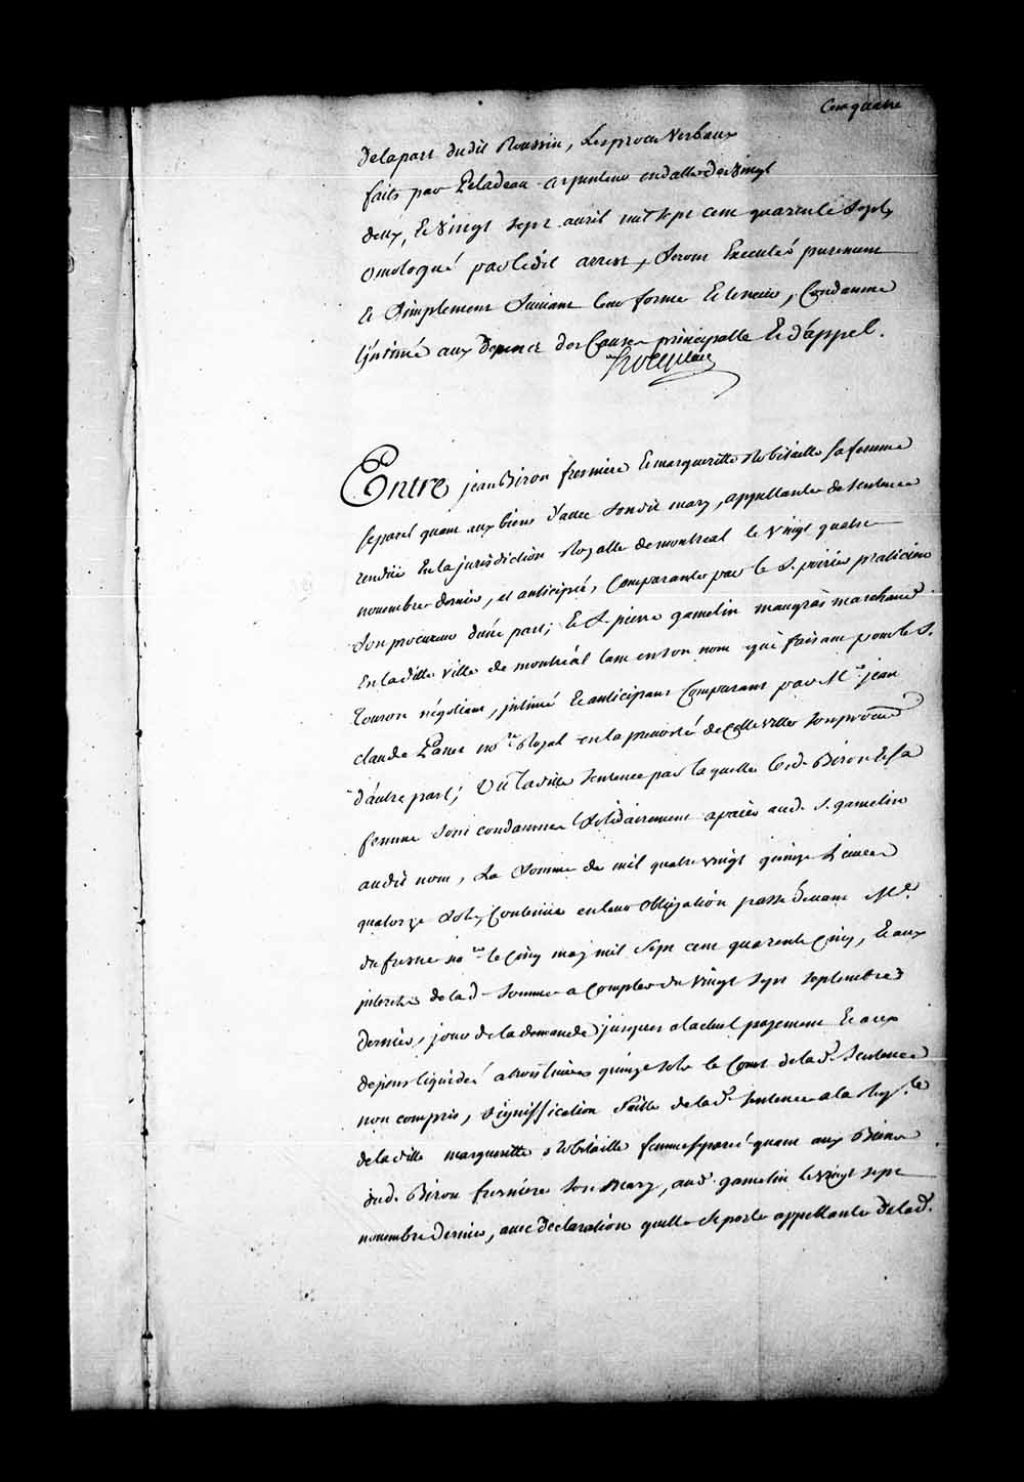 Cent quatre
de la part dudit Roussin, les procès verbaux
faits par Peladeau arpenteur en datte des vingt
deux, et vingt sept avril mil sept cent quarante sept,
omologué par ledit arrest, seront Executés purement
et Simplement Suivant leur forme et teneur, Condamne
l'Intimé aux Depens des Causes principalle et d'appel.
hocquart
Entre jean Biron fresniere et marguerite Robitaille sa femme
separée quant aux biens d'avec sondit mary, appellante de sentence
rendüe En la jurisdiction Royalle de montreal le vingt quatre
novembre dernier, et anticipée, Comparante par le S. poirier praticien
Son procureur d'une part; Et le S. pierre gamelin maugras marchand
En ladite ville de montréal tant en son nom que faisant pour le S.
touron négotiant, intimé et anticipant Comparant par Me. jean
claude Panet nore. Royal en la prevosté de Cette Ville son procureur
d'autre part; Vû ladite sentence par laquelle led. Biron et sa
femme sont condamnés Solidairement à paier aud. S. gamelin
audit nom, La Somme de mil quatre vingt quinze Livres
quatorze Sols, Contenüe en leur Obligation passée devant Me.
dufresne nore. le Cinq may mil sept cent quarante Cinq, Et aux
interets de lad. somme a Compter du vingt sept septembre
dernier, jour de la demande jusques à l'actuel payement Et aux
depens liquidés a trois livres quinze sols le Cout de lad. sentence
non compris, Signiffication faite de lad. sentence a la Reqte.
de ladite marguerite Robitaille femme separée quant aux Biens
dud. Biron fresniere son mary, aud. gamelin le vingt sept
novembre dernier, avec declaration qu'elle se porte appellante de lad.